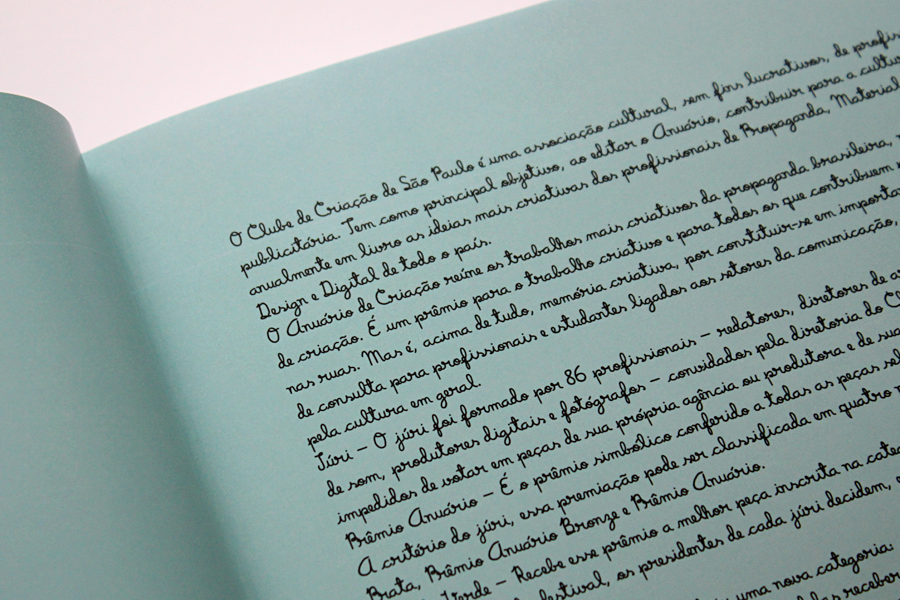 O Clube de Criação de São Paulo é uma associação cultural, sem fins lucrativos, de
publicitária. Tem como principal objetivo, ao editar o Anuário, contribuir para a
anualmente em livro as ideias mais criativas dos profissionais de Propaganda, Material
Design e Digital de todo o país.
O Anuário de Criação reúne os trabalhos mais criativos da propaganda brasileira,
de criação. É um prêmio para o trabalho criativo e para todos os que contribuem
nas ruas. Mas é, acima de tudo, memória criativa, por constituir-se em
de consulta para profissionais e estudantes ligados aos setores da comunicação,
pela cultura em geral.
Júri – O júri foi formado por 86 profissionais – redatores, diretores de
de som, produtores digitais e fotógrafos – convidados pela diretoria do
impedidos de votar em peças de sua própria agência ou produtora e de
Prêmio Anuário – É o prêmio simbólico conferido a todas as peças
A critério do júri, essa premiação pode ser classificada em quatro
Prata, Prêmio Anuário Bronze e Prêmio Anuário.
Verde – Recebe esse prêmio a melhor peça inscrita na
os presidentes de cada júri decidem,
uma nova categoria: